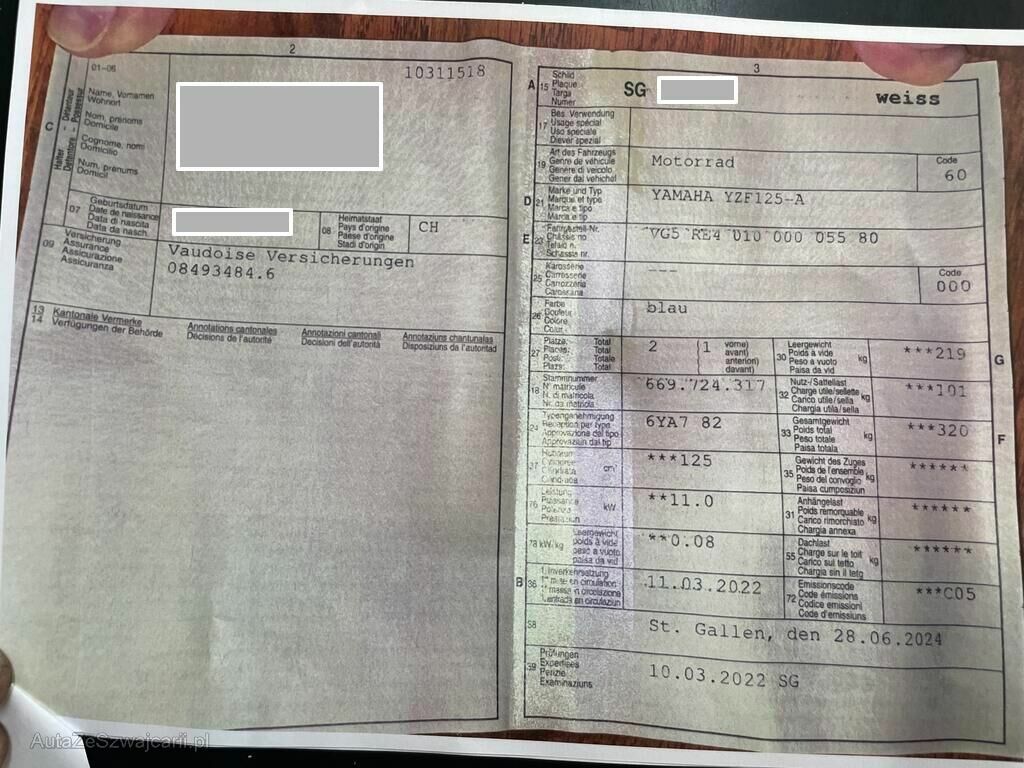 2
01-06
10311518
C
Halter
Détenteur
Detentore
Possessur
Name, Vornamen
Wohnort
Nom, prénoms
Domicile
Cognome, nomi
Domicilio
Num, prenums
Domicil
07
Geburtsdatum
Date de naissance
Data di nascita
Data da nasch.
08
Heimatstaat
Pays d'origine
Paese d'origine
Stadi d'origin
CH
09
Versicherung
Assurance
Assicurazione
Assicuranza
Vaudoise Versicherungen
08493484.6
13
14
Kantonale Vermerke
Verfügungen der Behörde
Annotations cantonales
Décisions de l'autorité
Annotazioni cantonali
Decisioni dell'autorità
Annotaziuns chantunalas
Disposiziuns da l'autoritad
3
A
15
Schild
Plaque
Targa
Numer
SG
weiss
17
Bes. Verwendung
Usage spécial
Uso speciale
Diever spezial
19
Art des Fahrzeugs
Genre de véhicule
Genere di veicolo
Gener dal vehichel
Motorrad
Code
60
D
21
Marke und Typ
Marque et type
Marca e tipo
Marca e tip
YAMAHA YZF125-A
E
23
Fahrgestell-Nr.
Châssis no
Telaio n.
Schassis nr.
VG5 RE4 010 000 055 80
25
Karosserie
Carrosserie
Carrozzeria
Carossaria
---
Code
000
26
Farbe
Couleur
Colore
Colur
blau
27
Plätze: Total
Places: Total
Posti: Totale
Plazs: Total
2
( 1 vorne)
avant)
anteriori)
davant)
30
Leergewicht
Poids à vide
Peso a vuoto
Paisa da vid
kg
***219
G
18
Stammnummer
N° matricule
N. di matricola
Nr. da matricla
669.724.317
32
Nutz-/Sattellast
Charge utile/sellette
Carico utile/sella
Chargia utila/sella
kg
***101
24
Typengenehmigung
Réception par type
Approvazione del tipo
Approvaziun dal tip
6YA7 82
33
Gesamtgewicht
Poids total
Peso totale
Paisa totala
kg
***320
F
37
Hubraum
Cylindrée
Cilindrata
Cilindrada
cm³
***125
35
Gewicht des Zuges
Poids de l'ensemble
Peso del convoglio
Paisa cumposiziun
kg
******
76
Leistung
Puissance
Potenza
Prestaziun
kW
**11.0
31
Anhängelast
Poids remorquable
Carico rimorchiato
Chargia annexa
kg
******
78 kW/kg
Leergewicht
poids à vide
peso a vuoto
paisa da vid
**0.08
55
Dachlast
Charge sur le toit
Carico sul tetto
Chargia sin il tetg
kg
******
B
36
1. Inverkehrsetzung
1re mise en circulation
1a messa in circolazione
1. entrada en circulaziun
11.03.2022
72
Emissionscode
Code émissions
Codice emissioni
Code d'emissiuns
***C05
38
St. Gallen, den 28.06.2024
39
Prüfungen
Expertises
Perizie
Examinaziuns
10.03.2022 SG
AutaZeSzwajcarii.pl